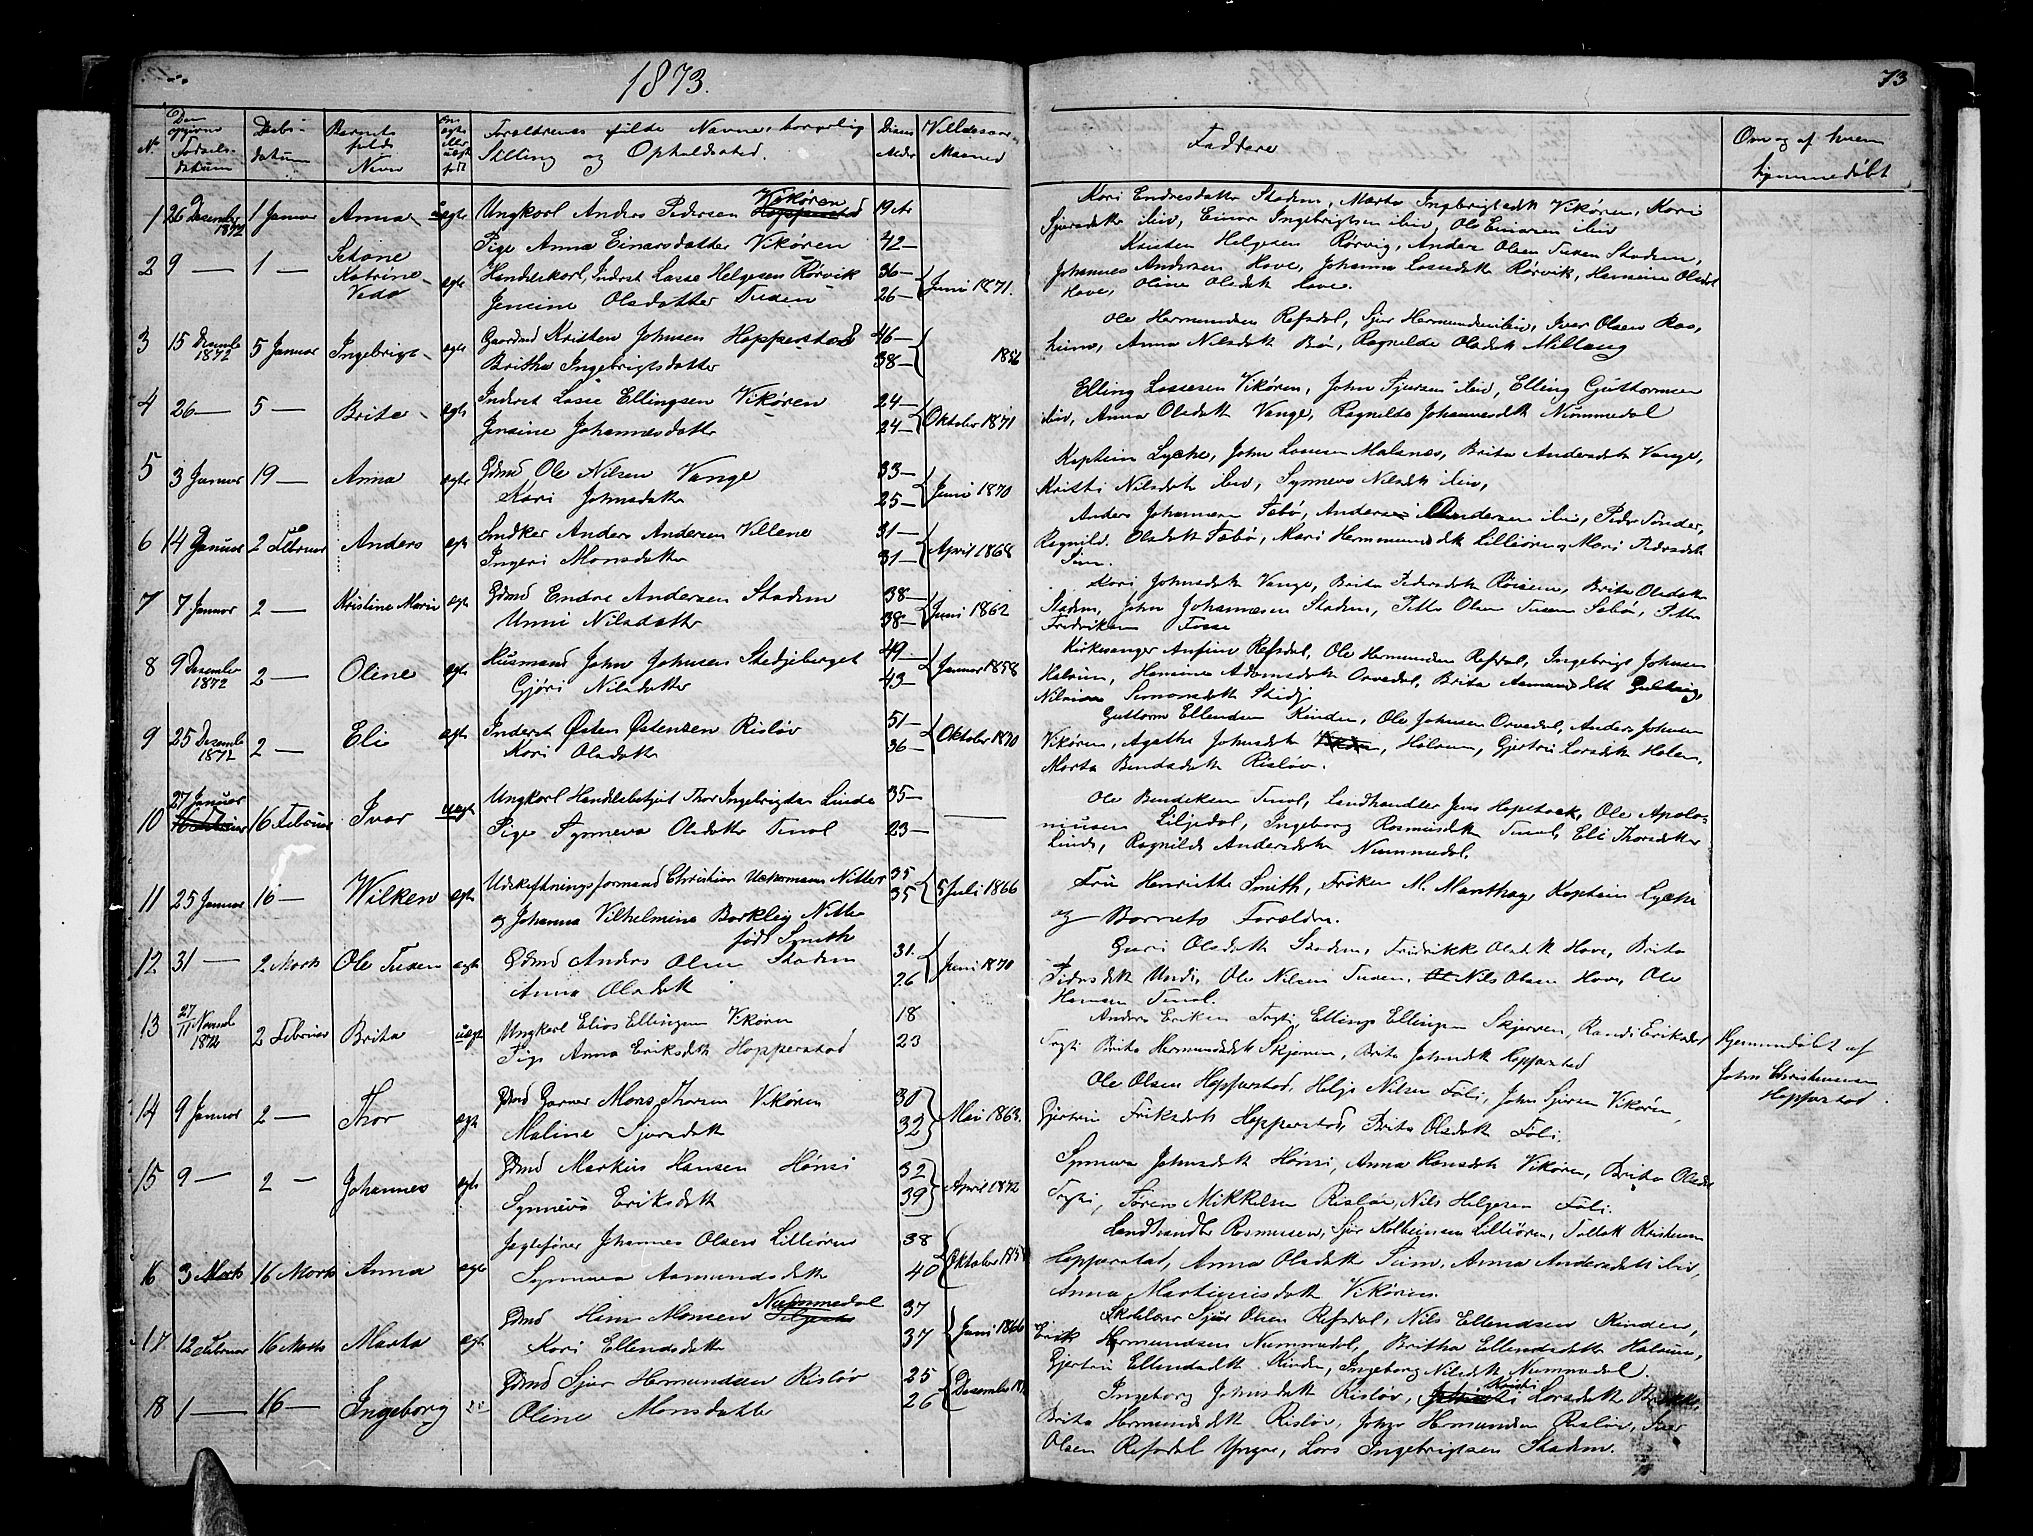 1873.
73
No
Den opgivne Fødselsdatum
Daabsdatum
Barnets fulde Navn
Om ægte eller uægte født
Forældrenes fulde Navne, borgerlig
Stilling og Opholdssted.
Deres Alder
Vielsesaar Maaned
Faddere
Om og af hvem
hjemmedöbt
1 26 Desember 1872 1 Januar Anna uegte Ungkarl Anders Pedersen Vikøren 19 Ar
Pige Anna Einarsdatter Vikøren 42
Kari Endresdatter Stadem, Marta Ingebrigtsdt Vikören, Kari
Sjursdtr ibid, Einar Ingebrigtsen ibid, Ole Einarsen ibid
2 9 — 1 — Katrine egte Handelskarl, Inderst Lasse Helgesen Rörvik 36
Jensine Olsdatter Tusen 26 Juni 1871.
Kristen Helgesen Rörvig, Anders Olsen Tusen Stadem,
Johannes Andersen Hove, Johanna Lassesdtr Rörvik, Hansine Olsdt
Hove, Oline Olsdtr Hove.
3 15 Desemb 1872 5 Januar Ingebrigt egte Gaardmd Kristen Johnsen Hopperstad 46
Britha Ingebrigtsdatter 38 1856
Ole Hermundsen Refsdal, Sjur Hermundsen ibid, Ivar Olsen
Anna Nilsdtr Bö, Ragnilde Olsdtr
4 26 — 5 — Brita egte Inderst Lasse Ellingsen Vikøren 24
Jensine Johannesdatter 24 Oktober 1871
Elling Lassesen Vikören, John Sjursen ibid, Elling Guttormsen
ibid, Anna Olsdtr Vange, Ragnilde Johannesdtr Nummedal
5 3 Januar 19 — Anna egte Gdmd Ole Nilsen Vange 33
Kari Johnsdatter 25 Juni 1870
Kaptein Lyche, John Lassesen Malsnes, Brita Andersdtr Vange,
Kristi Nilsdtr ibid, Synneva Nilsdtr ibid,
6 14 Januar 2 Februar Anders egte Sndker Anders Andersen Villene 31
Ingeri Monsdatter 31 April 1868
Anders Johannesen Tobö, Andersen ibid, Peder
Ragnild Olsdtr Mari Hermundsdtr Lilliören, Mari Pedersdtr
7 7 Januar 2 — Kristine Marie egte Gdmd Endre Andersen Stadem 38
Unni Nilsdatter 38 Juni 1862
Kari Johnsdtr Vange, Brita Pedersdtr Brita Olsdatter
Stadem, John Johannesen Stadem, Peter Olsen Tusen Peter
Fredriksen Fosse
8 9 Desember 1872 2 — Oline egte Husmand John Johnsen Stedjeberget 49
Gjöri Nilsdatter 43 Januar 1858
Kirkesanger Anfinn Refsdal, Ole Hermundsen Refsdal, Ingebrigt Johnsen
Halsum, Hansine Adamsdtr Orvedal, Brita Aamundsdtt
Simonsdtr Stedje
9 25 Desemb 1872 2 — Eli egte Inderst Østen Østensen Risløv 51
Kari Olsdatter 36 Oktober 1870
Guttorm Ellendsen Kinden, Ole Johnsen Orvedal, Anders Johnsen
Vikören, Agathe Johnsdtr Halsum, Gjertrud Larsdtr Halsen,
Marta Bendsdtr Rislöv.
10 27 Januar 16 Februar Ivar uegt Ungkarl Handelsbetjent Thor Ingebrigtsen Linde 35
Pige Synneva Olsdatter Tenol 23
Ole Bendiksen Tenol, Landhandler Jens Hopstock, Ole Apolo-
niusen Liljedal, Ingeborg Rasmusdtr Tenol, Eli Thorsdatter
Linde, Ragnilde Andersdtr Nummedal.
11 25 Januar 16 — Wilken egte Udskiftningsformand Christian Uckermann Nitter 35
og Johanna Vilhelmine Barkley Nitter 35 5 Juli 1866
född Smith
Fru Henriette Smith, Frøken M. Manthey, Kaptein Lyche
og Barnets Forældre.
12 31 — 2 Marts Ole Tusen egte Gdmd Anders Olsen Stadem 31
Anna Olsdtr 26 Juni 1870
Guri Olsdtr Stadem, Fredrikke Olsdtr Hove, Brita
Pedersdtr Undi, Ole Nilsen Tusen, Nils Olsen Hove, Ole
Hansen Tenol.
13 27/11 Novemb 1872 2 Februar Brita uegt Ungkarl Elias Ellingsen Vikören 18
Pige Anna Eriksdtr Hopperstad 23
Anders Eriksen Togti, Elling Ellingsen Skjerven, Randi Eriksdat
Togti Brita Hermundsdtr Skjerven, Brita Johnsdtr Hopperstad
Hjemmedöbt af
John Christensen
Hopperstad.
14 9 Januar 2 — Thor egt Gdmd Garver Mons Thorsen Vikören 30
Maline Sjursdtr 32 Mai 1863.
Ole Olsen Hopperstad, Helge Nilsen Föli, John Sjursen Vikören,
Gjertrud Eriksdtr Hopperstad, Brita Olsdtr Föli.
15 9 — 2 — Johannes egte Gdmd Markus Hansen Hönsi 32
Synneva Eriksdtr 39 April 1872
Synneva Johnsdtr Hönsi, Anna Hansdtr Vikören, Brita Olsdtr
Togti, Sören Mikkelsen Rislöv, Nils Helgesen Föli.
16 3 Marts 16 Marts Anna egte Jagtefører Johannes Olsen Lilliören 38
Synneva Aamundsdtr 40 Oktober
Landhandler Rasmusen, Sjur Kolbeinsen Lilliören, Tollak Kristensen
Hopperstad, Anna Olsdtr Tum, Anna Andersdtr ibid,
Anna Martinusdtr Vikören.
17 12 Februar 16 Marts Marta egte Gdmd Hans Monsen Nummedal 37
Kari Ellendsdtr 37 Juni 1866
Skolelærer Sjur Olsen Refsdal, Nils Ellendsen Kinden,
Erik Hermundsen Nummedal, Britha Ellendsdatter Halsum,
Gjertrud Ellendsdtr Kinden, Ingeborg Nilsdtr Nummedal.
18 1 — 16 — Ingeborg Gdmd Sjur Hermundsen Rislöv 25
Oline Monsdatter 26 Desember
Ingeborg Johnsdtr Rislöv, Kristi Larsdtr
Brita Hermundsdtr Rislöv, Hermundsen Rislöv, Iver
Olsen Refsdal Yngre, Lars Ingebrigtsen Stadem.